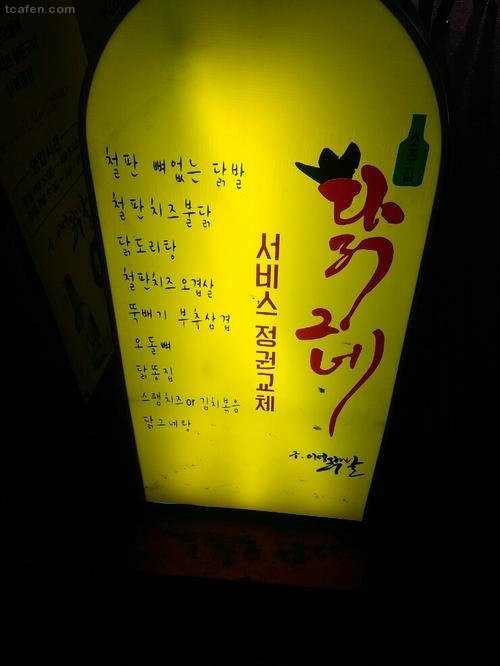 tcafen.com
소주집
닭그네
서비스 정권교체
철판 뼈없는 닭발
철판치즈불닭
닭도리탕
철판치즈오겹살
뚝배기 부추삼겹
오돌뼈
닭똥집
스팸치즈or김치볶음
닭그네탕
구.이덕